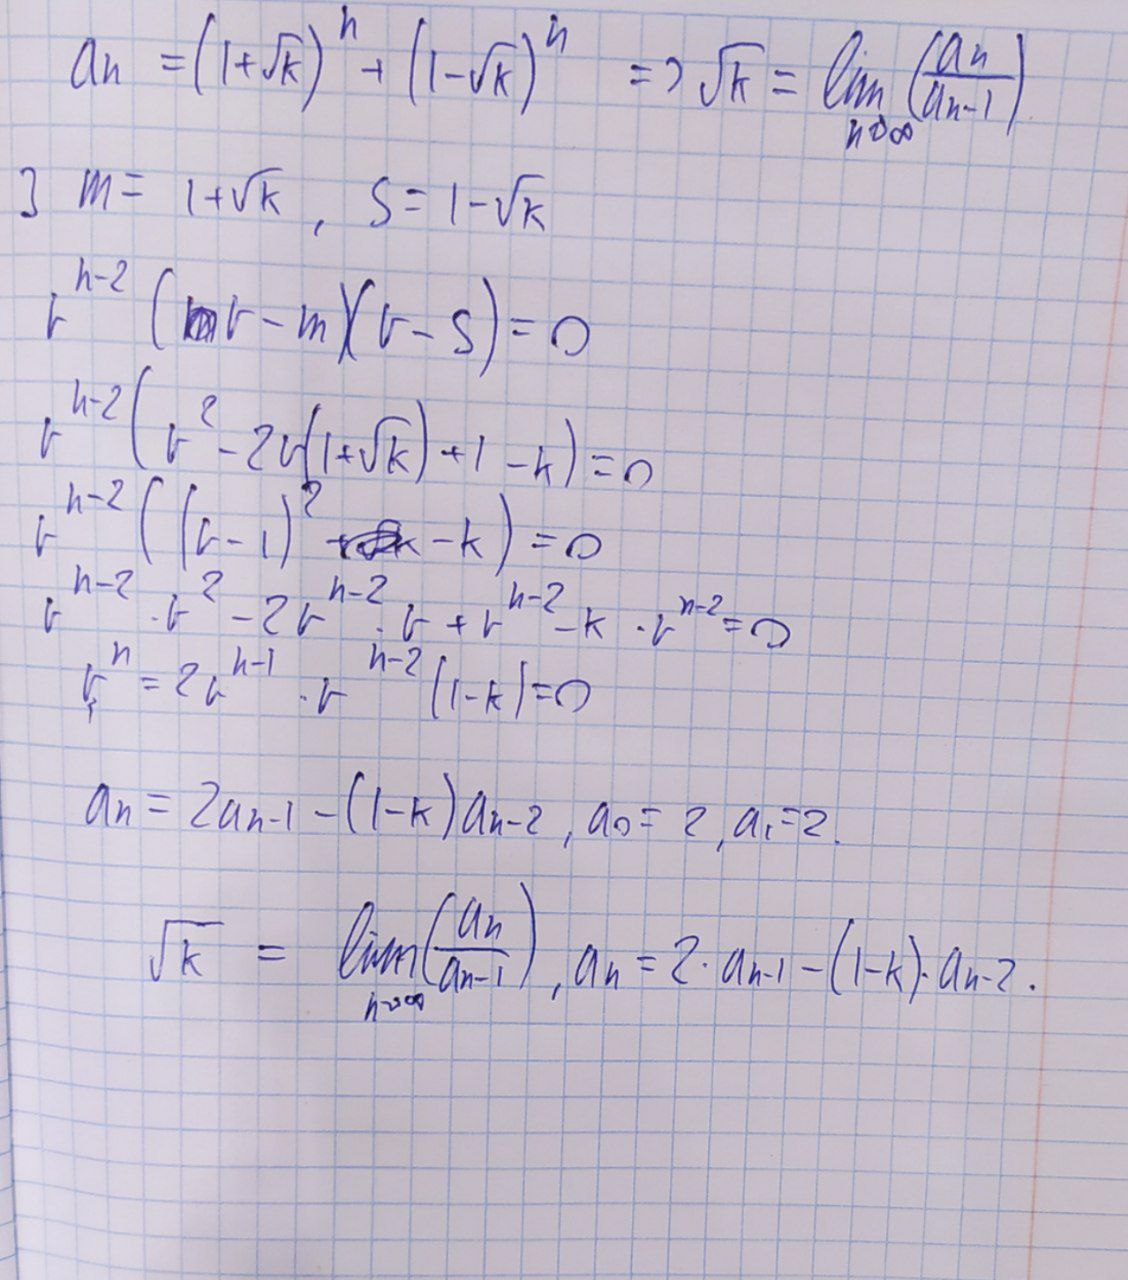 an = (1+√k)^n + (1-√k)^n => √k = lim n→∞ (an/an-1)
] m = 1+√k, S = 1-√k
r^n-2 (r - m)(r - S) = 0
r^n-2 (r^2 - 2r(1+√k) + 1 - k) = 0
r^n-2 ((r-1)^2 - k) = 0
r^n-2 · r^2 - 2r^n-2 · r + r^n-2 - k · r^n-2 = 0
r^n = 2r^n-1 · r^n-2 (1-k) = 0
an = 2an-1 - (1-k)an-2, a0 = 2, a1 = 2.
√k = lim n→∞ (an/an-1), an = 2· an-1 - (1-k)· an-2.